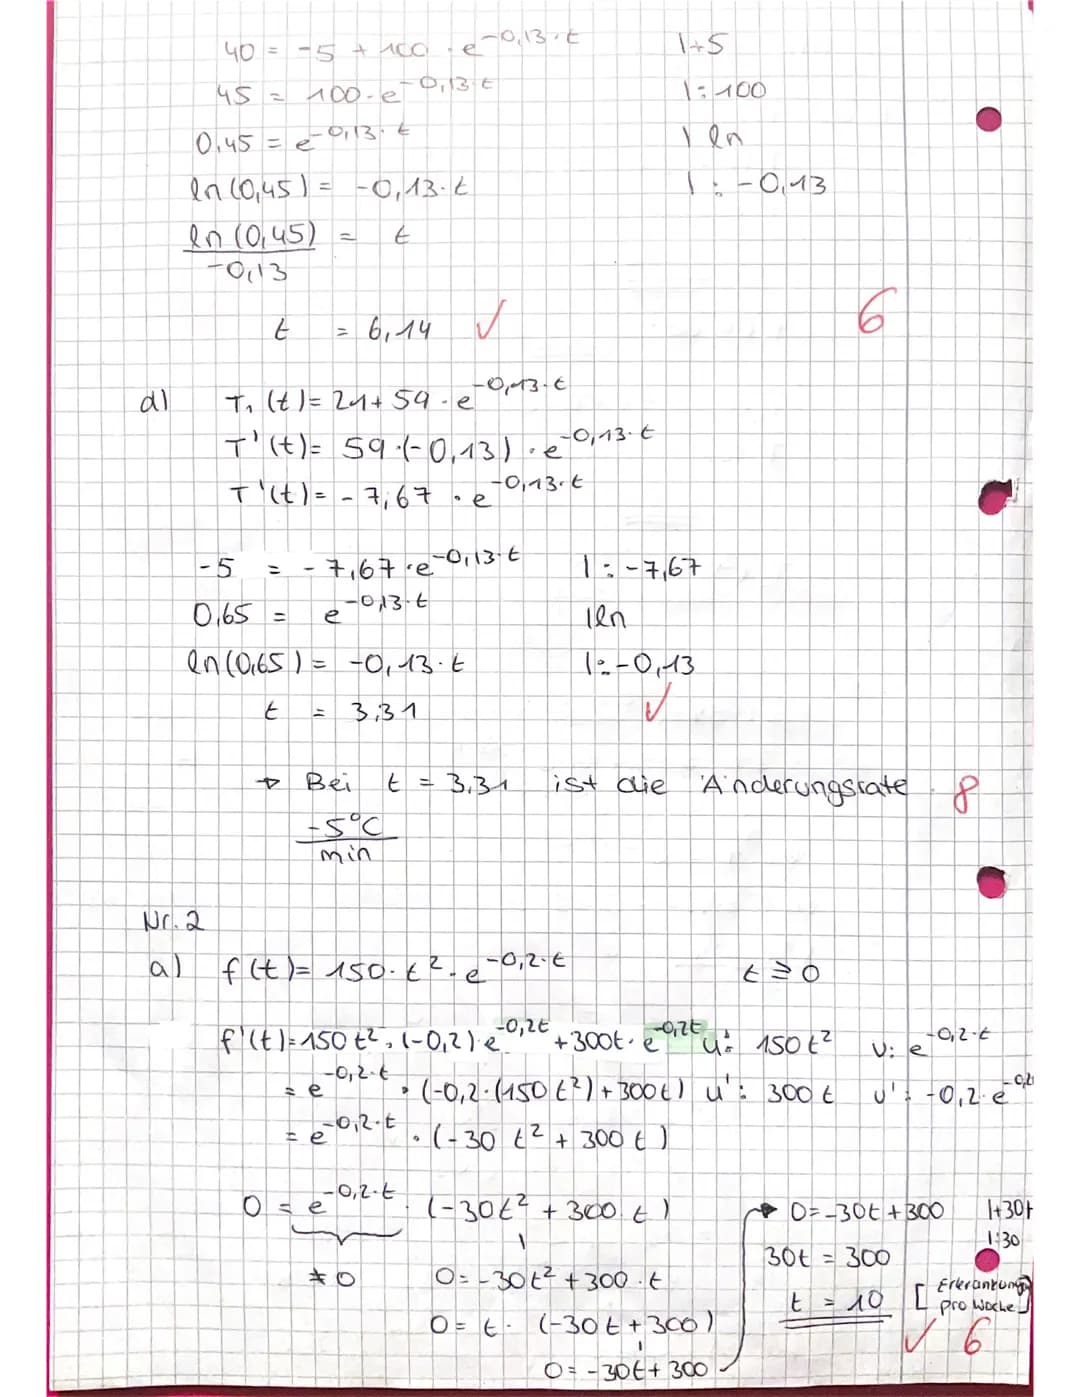 40 = -5 + 100 · e^-0,13·t |+5
45 = 100·e^-0,13·t |:100
0,45 = e^-0,13·t | ln
ln(0,45) = -0,13·t | : -0,13
ln(0,45) = t
-0,13
t = 6,14 ✓ 6
d) T₁(t) = 21+59·e^-0,13·t
T'(t) = 59·(-0,13)·e^-0,13·t
T'(t) = -7,67 · e^-0,13·t
-5 = -7,67·e^-0,13·t | : -7,67
0,65 = e^-0,13·t |ln
ln(0,65) = -0,13·t |:-0,13
t = 3,31 ✓
→ Bei t = 3,31 ist die Änderungsrate 8
-5°C
min
Nr. 2
a) f(t) = 150·t²·e^-0,2·t t ≥ 0
f'(t) = 150t²·(-0,2)·e^-0,2t + 300t·e^-0,2t u: 150t² v: e^-0,2·t
= e^-0,2·t · (-0,2·(150t²)+300t) u': 300t v': -0,2·e^-0,2t
= e^-0,2·t · (-30t² + 300t)
0 = e^-0,2·t · (-30t² + 300t) → 0=-30t+300 |+30t
|:30
≠0 0 = -30t² + 300·t 30t = 300
0 = t · (-30t+300) t = 10 [Erkrankung
pro Woche]
0 = -30t+300 ✓ 6